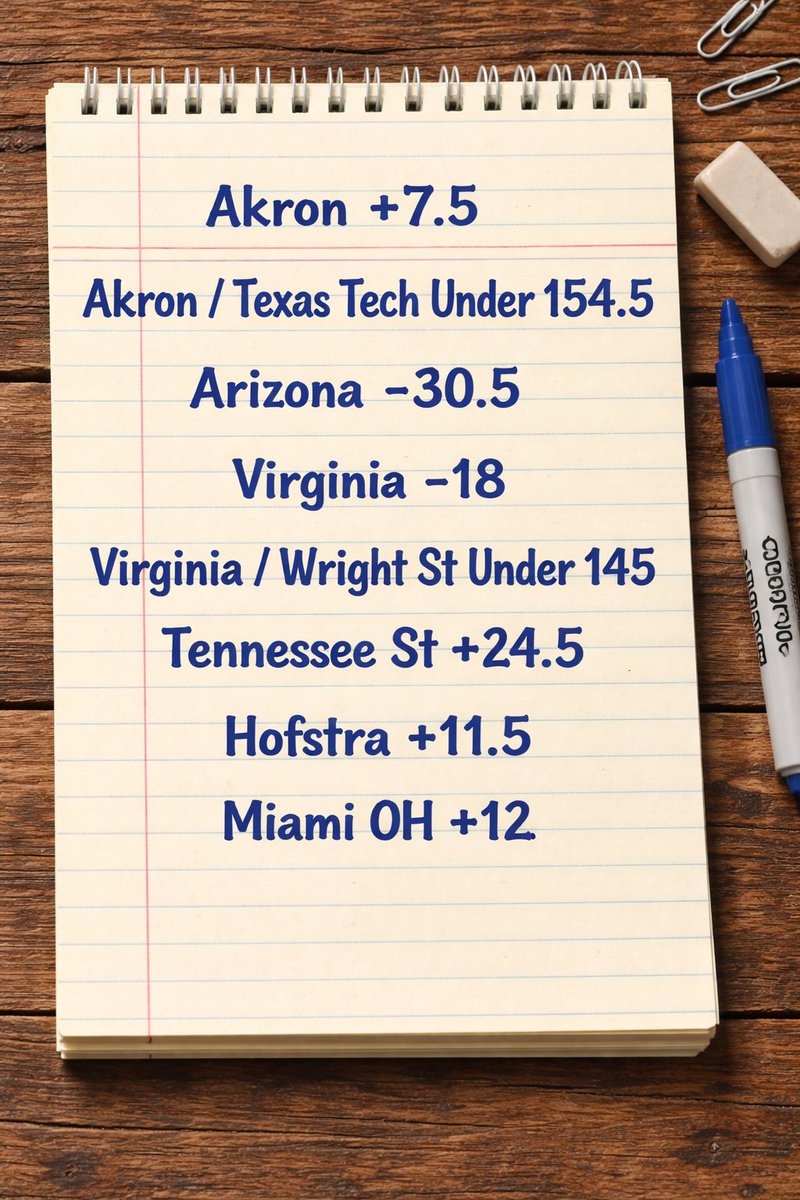 Akron +7.5
Akron / Texas Tech Under 154.5
Arizona -30.5
Virginia -18
Virginia / Wright St Under 145
Tennessee St +24.5
Hofstra +11.5
Miami OH +12